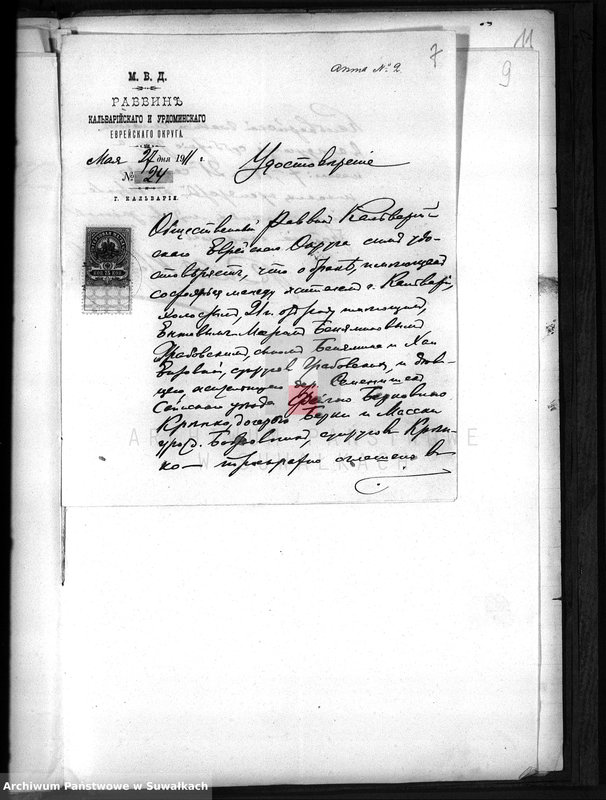 7
Акта № 2
11
9
М. В. Д.
РАВВИНЪ
КАЛЬВАРІЙСКАГО И УРДОМИНСКАГО
ЕВРЕЙСКАГО ОКРУГА.
Мая 27 дня 1911 г.
№ 24
Г. КАЛЬВАРІЯ.
Удостовѣреніе
Общественный Раввинъ Кальварій-
скаго Еврейскаго Округа симъ удо-
стовѣряетъ, что о бракѣ, имѣющемъ
состояться между жителемъ г. Кальваріи,
холостымъ, 21 г. отъ роду
Беніаминовымъ
Грабовскимъ, сыномъ Беніамина и Хаи
супруговъ Грабовскихъ, и дѣви-
цею дер.
Сейнскаго уѣзда Берковною
Крынко, дочерью Берки и
урожд. супруговъ Крын-
ко — троекратно оглашено в
ARCHIWUM PAŃSTWOWE
W SUWAŁKACH
Archiwum Państwowe w Suwałkach